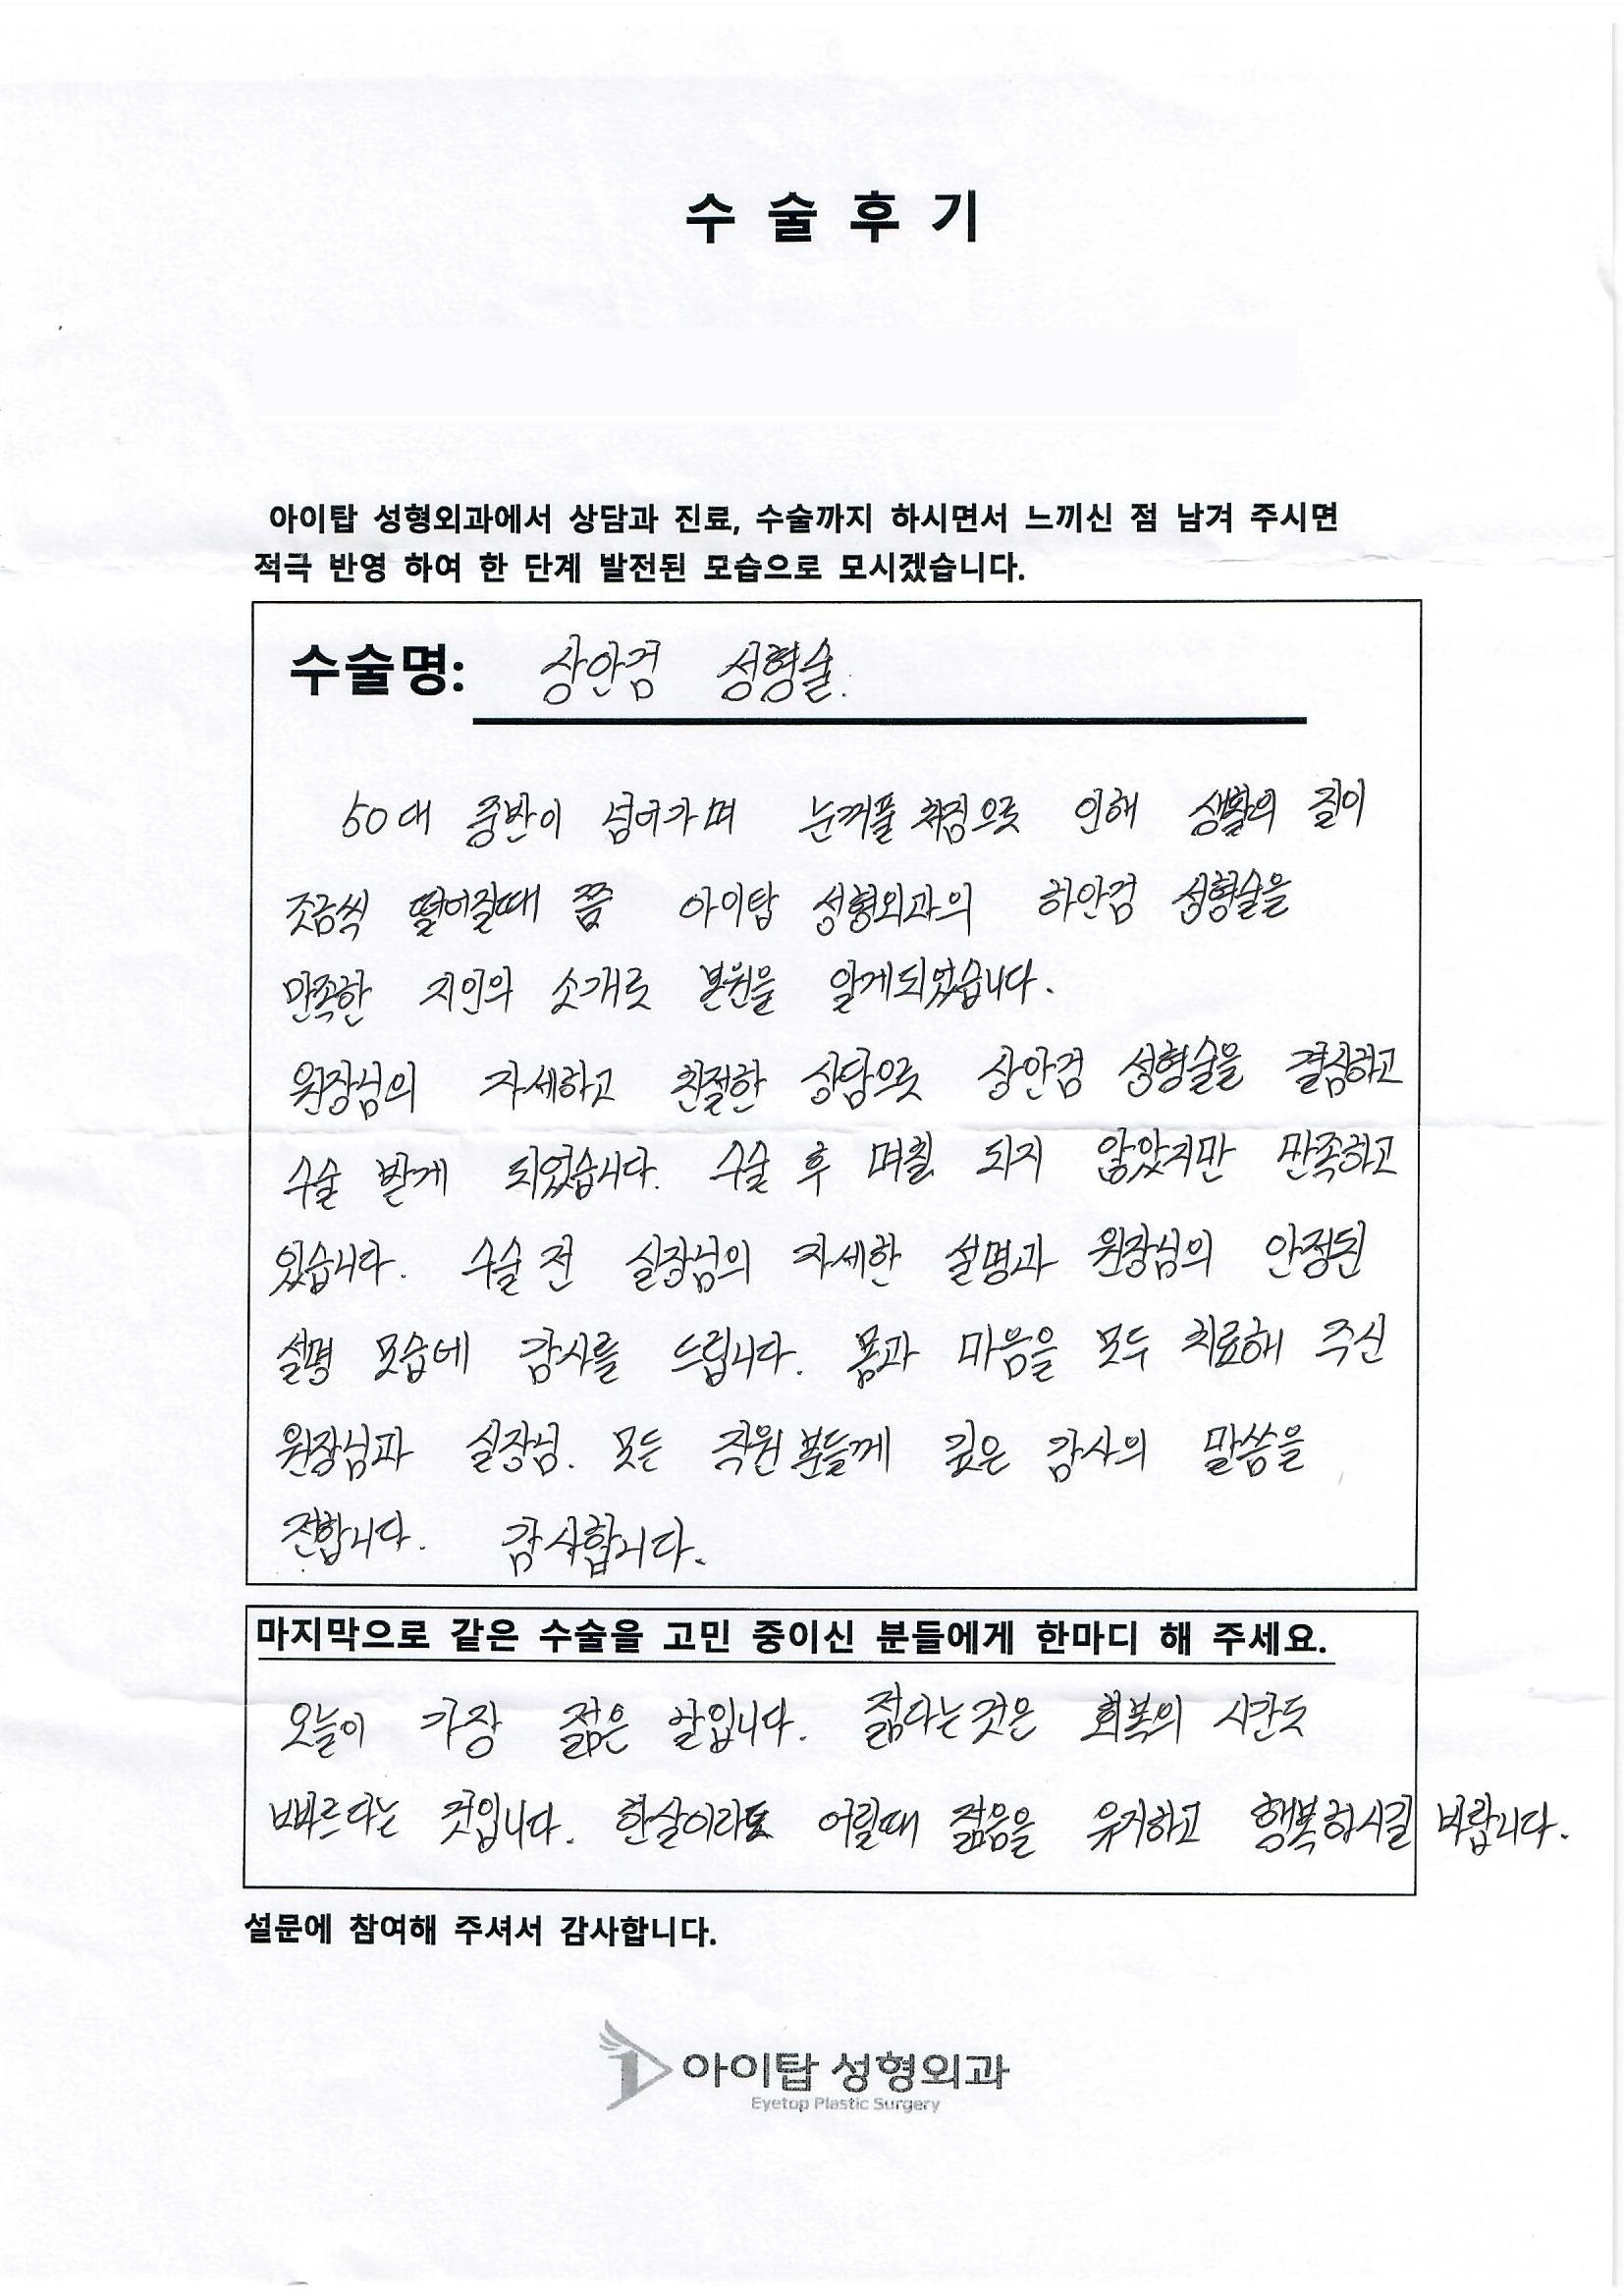 수 술 후 기
아이탑 성형외과에서 상담과 진료, 수술까지 하시면서 느끼신 점 남겨 주시면
적극 반영 하여 한 단계 발전된 모습으로 모시겠습니다.
수술명: 상안검 성형술.
50대 중반이 넘어가며 눈꺼풀 처짐으로 인해 생활의 질이
조금씩 떨어질때 쯤 아이탑 성형외과의 하안검 성형술을
만족한 지인의 소개로 본원을 알게되었습니다.
원장님의 자세하고 친절한 상담으로 상안검 성형술을 결심하고
수술 받게 되었습니다. 수술 후 며칠 되지 않았지만 만족하고
있습니다. 수술 전 실장님의 자세한 설명과 원장님의 안정된
설명 모습에 감사를 드립니다. 몸과 마음을 모두 치료해 주신
원장님과 실장님. 모든 직원분들께 깊은 감사의 말씀을
전합니다. 감사합니다.
마지막으로 같은 수술을 고민 중이신 분들에게 한마디 해 주세요.
오늘이 가장 젊은 날입니다. 젊다는것은 회복의 시간도
빠르다는 것입니다. 한살이라도 어릴때 젊음을 유지하고 행복하시길 바랍니다.
설문에 참여해 주셔서 감사합니다.
아이탑 성형외과
Eyetop Plastic Surgery